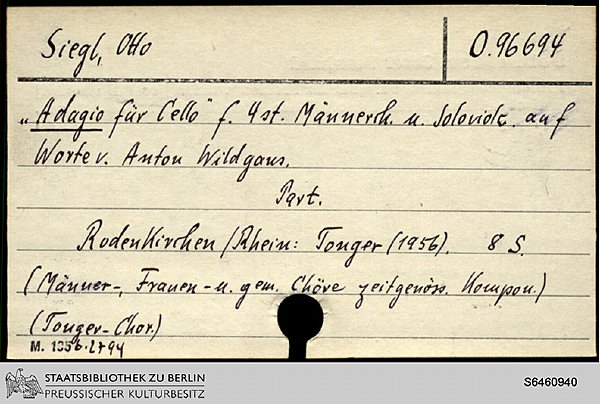 Siegl, Otto
O.96694
„Adagio für Cello" f. 4st. Männerch. u. Soloviolc. auf
Worte v. Anton Wildgans.
Part.
Rodenkirchen/Rhein: Tonger (1956). 8 S.
(Männer-, Frauen- u. gem. Chöre zeitgenöss. Kompon.)
(Tonger-Chor.)
M. 1956.2794
STAATSBIBLIOTHEK ZU BERLIN
PREUSSISCHER KULTURBESITZ
S6460940